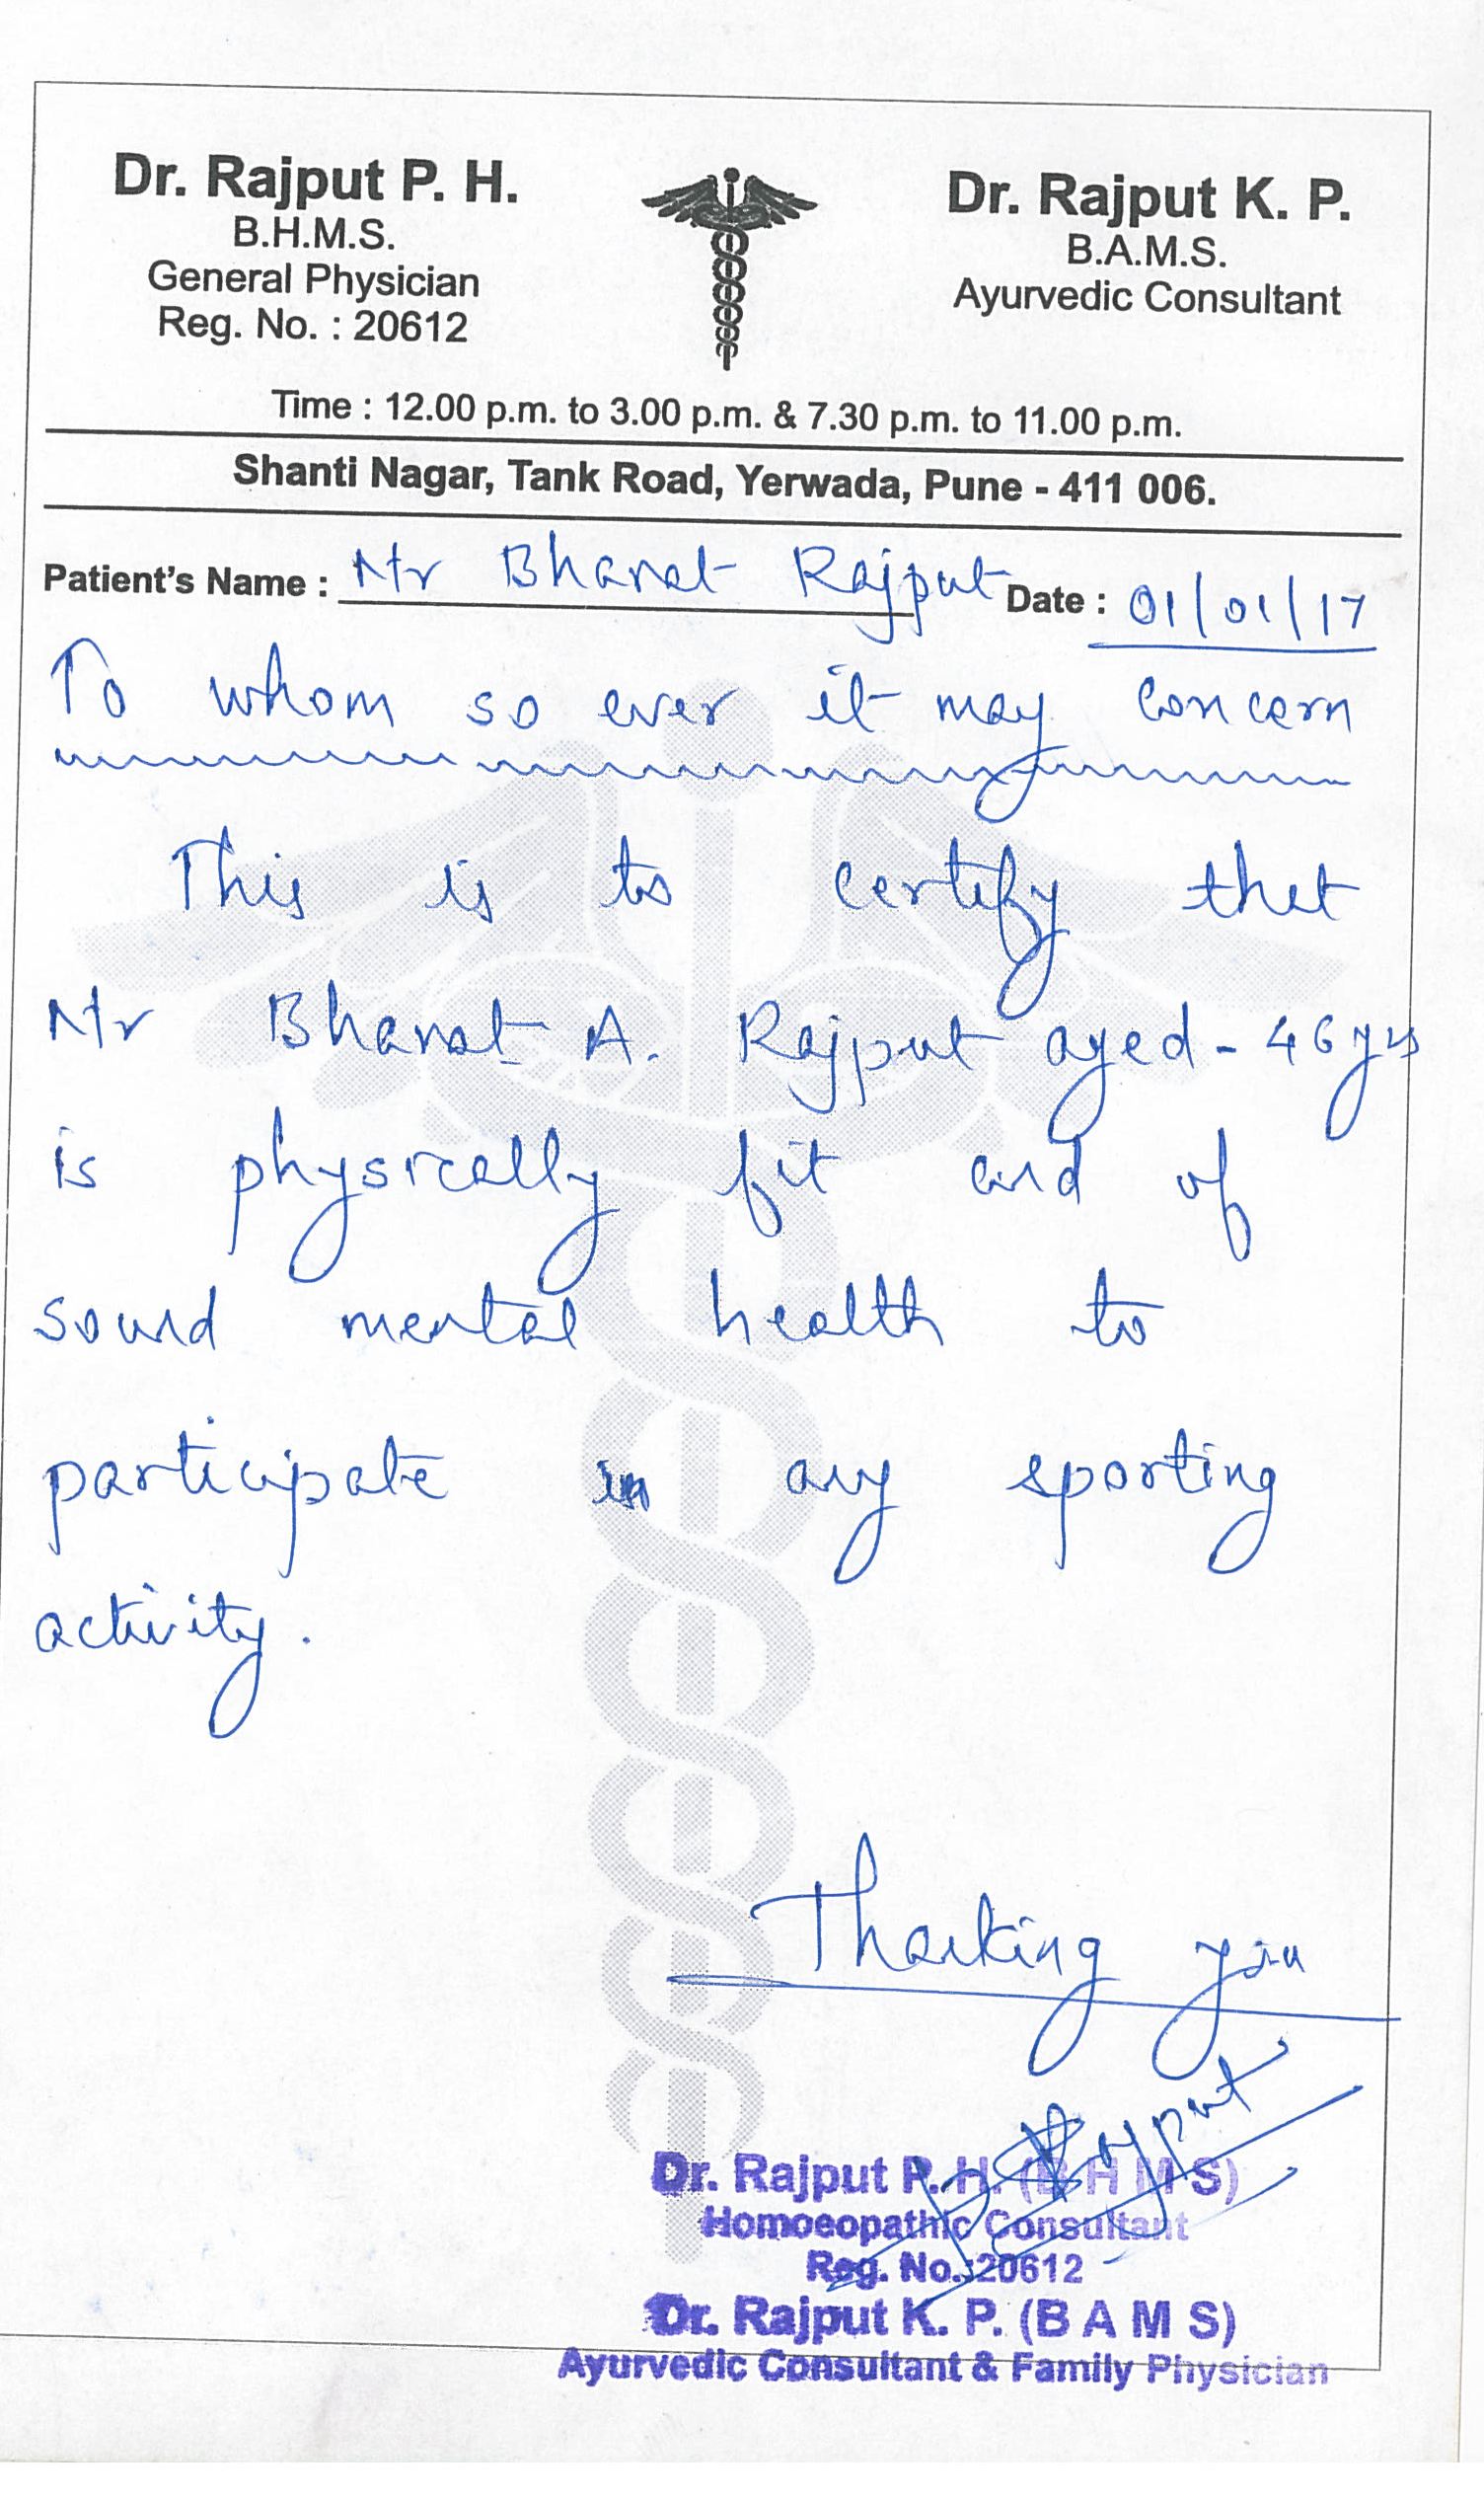 Dr. Rajput P. H.
B.H.M.S.
General Physician
Reg. No. : 20612
Dr. Rajput K. P.
B.A.M.S.
Ayurvedic Consultant
Time : 12.00 p.m. to 3.00 p.m. & 7.30 p.m. to 11.00 p.m.
Shanti Nagar, Tank Road, Yerwada, Pune - 411 006.
Patient's Name : Mr Bharat Rajput Date : 01/01/17
To whom so ever it may concern
This is to certify that
Mr Bharat A. Rajput aged - 46 yrs
is physically fit and of
sound mental health to
participate in any sporting
activity.
Thanking you
Rajput
Dr. Rajput P. H. (B H M S)
Homoeopathic Consultant
Reg. No.:20612
Dr. Rajput K. P. (B A M S)
Ayurvedic Consultant & Family Physician